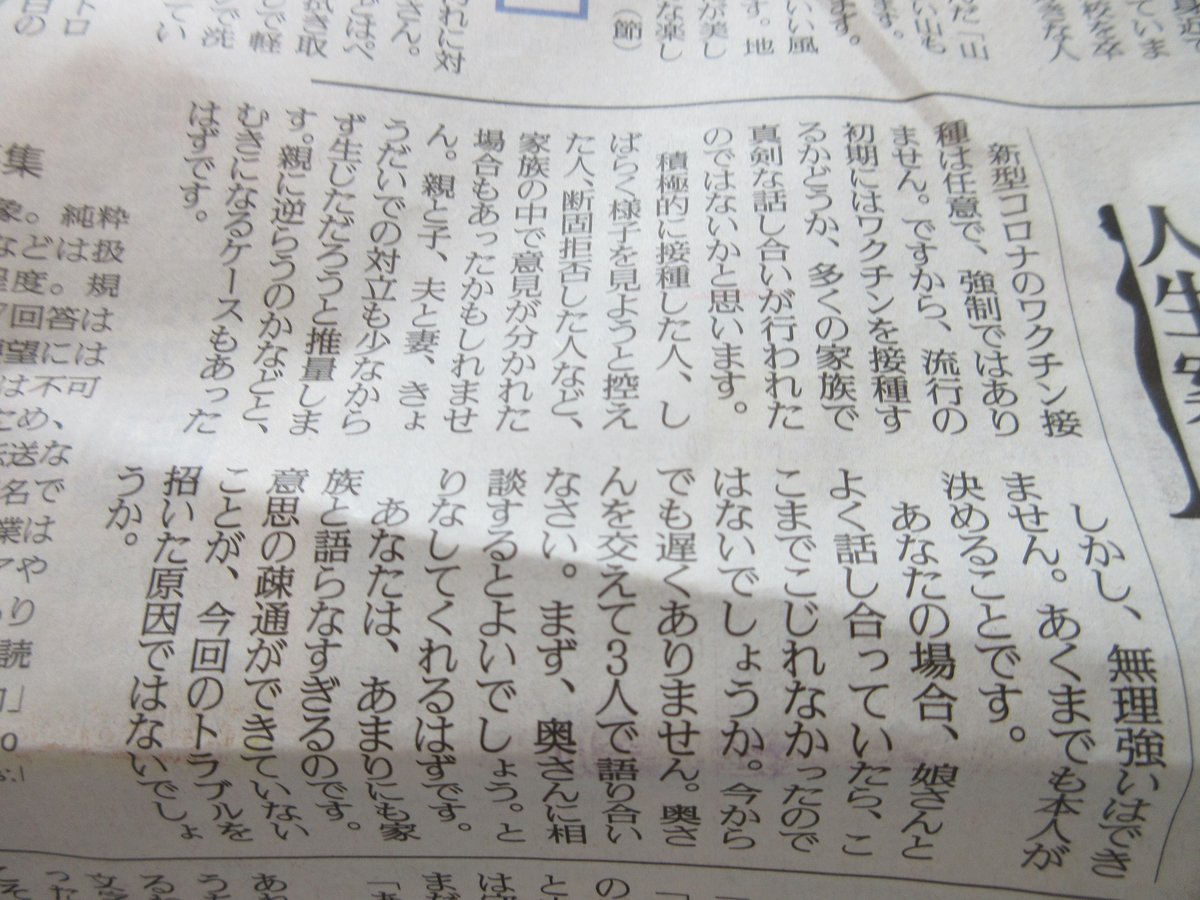 人生
新型コロナのワクチン接
種は任意で、強制ではあり
ません。ですから、流行の
初期にはワクチンを接種す
るかどうか、多くの家族で
真剣な話し合いが行われた
のではないかと思います。
積極的に接種した人、し
ばらく様子を見ようと控え
た人、断固拒否した人など、
家族の中で意見が分かれた
場合もあったかもしれませ
ん。親と子、夫と妻、きょ
うだいでの対立も少なから
ず生じただろうと推量しま
す。親に逆らうのかなどと、
むきになるケースもあった
はずです。
しかし、無理強いはでき
ません。あくまでも本人が
決めることです。
あなたの場合、娘さんと
よく話し合っていたら、こ
こまでこじれなかったので
はないでしょうか。今から
でも遅くありません。奥さ
んを交えて3人で語り合い
なさい。まず、奥さんに相
談するとよいでしょう。と
りなしてくれるはずです。
あなたは、あまりにも家
族と語らなすぎるのです。
意思の疎通ができていない
ことが、今回のトラブルを
招いた原因ではないでしょ
うか。
た「山
い山も
ます。
いい風
す。地
が美し
な楽し
(節)
れに対
さん。
ではペ
拭き取
で軽
で洗
てい
トロ
日の
集
象。純粋
などは扱
程度。規
回答は
望には
は不可
ため、
送な
名で
業は
アや
り
読